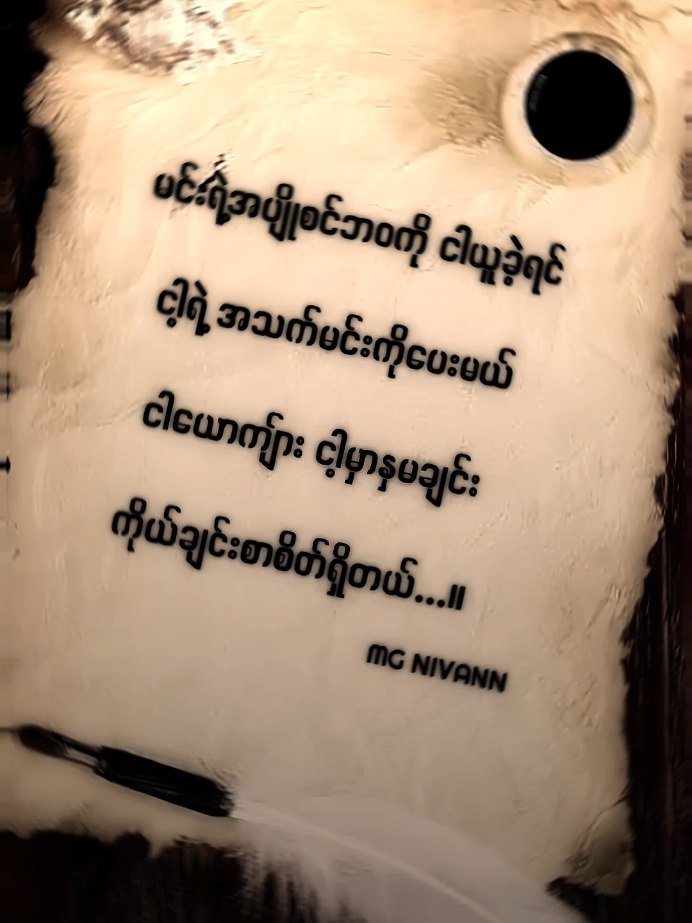 မင်းရဲ့အပျိုစင်ဘဝကို ငါယူခဲ့ရင်
ငါ့ရဲ့ အသက်မင်းကိုပေးမယ်
ငါယောကျ်ား ငါ့မှာနှမချင်း
ကိုယ်ချင်းစာစိတ်ရှိတယ်...။
MG NIVANN